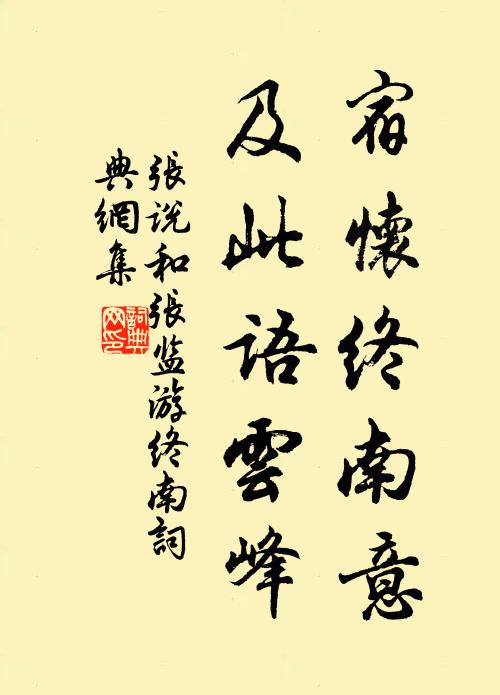 宿懷終南意
及此語雲峰
張说和張监游终南詞
典網集
詞典
网印